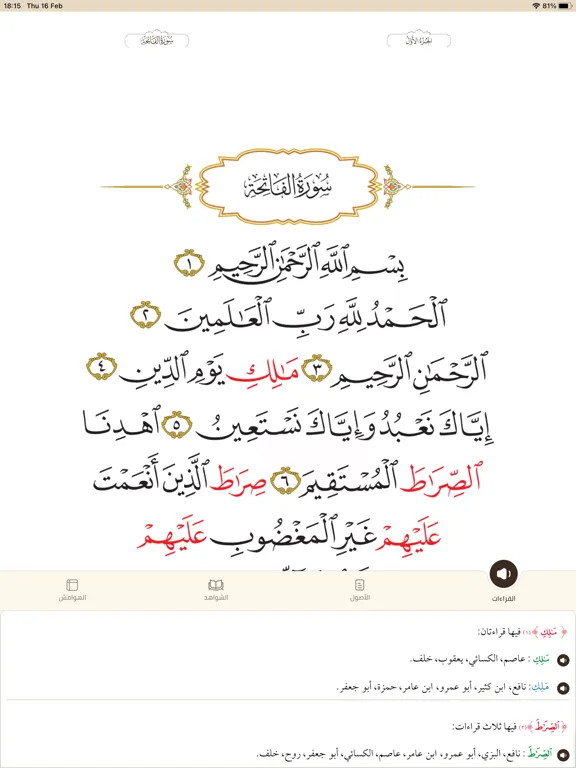 18:15 Thu 16 Feb 81%
الجزء الأول سورة الفاتحة
سُورَةُ الفَاتِحَةِ
بِسْمِ ٱللَّهِ ٱلرَّحْمَٰنِ ٱلرَّحِيمِ ١
ٱلْحَمْدُ لِلَّهِ رَبِّ ٱلْعَٰلَمِينَ ٢
ٱلرَّحْمَٰنِ ٱلرَّحِيمِ ٣ مَٰلِكِ يَوْمِ ٱلدِّينِ ٤
إِيَّاكَ نَعْبُدُ وَإِيَّاكَ نَسْتَعِينُ ٥ ٱهْدِنَا
ٱلصِّرَٰطَ ٱلْمُسْتَقِيمَ ٦ صِرَٰطَ ٱلَّذِينَ أَنْعَمْتَ
عَلَيْهِمْ غَيْرِ ٱلْمَغْضُوبِ عَلَيْهِمْ
القراءات الأصول الشواهد الهوامش
﴿مَٰلِكِ﴾ (١) فيها قراءتان:
مَٰلِكِ: عاصم، الكسائي، يعقوب، خلف.
مَلِكِ: نافع، ابن كثير، أبو عمرو، ابن عامر، حمزة، أبو جعفر.
﴿ٱلصِّرَٰطَ﴾ (٢) فيها ثلاث قراءات:
ٱلصِّرَٰطَ: نافع، البزي، أبو عمرو، ابن عامر، عاصم، الكسائي، أبو جعفر، روح، خلف.